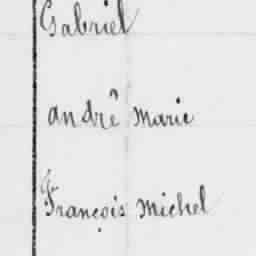 Gabriel
andré marie
François michel